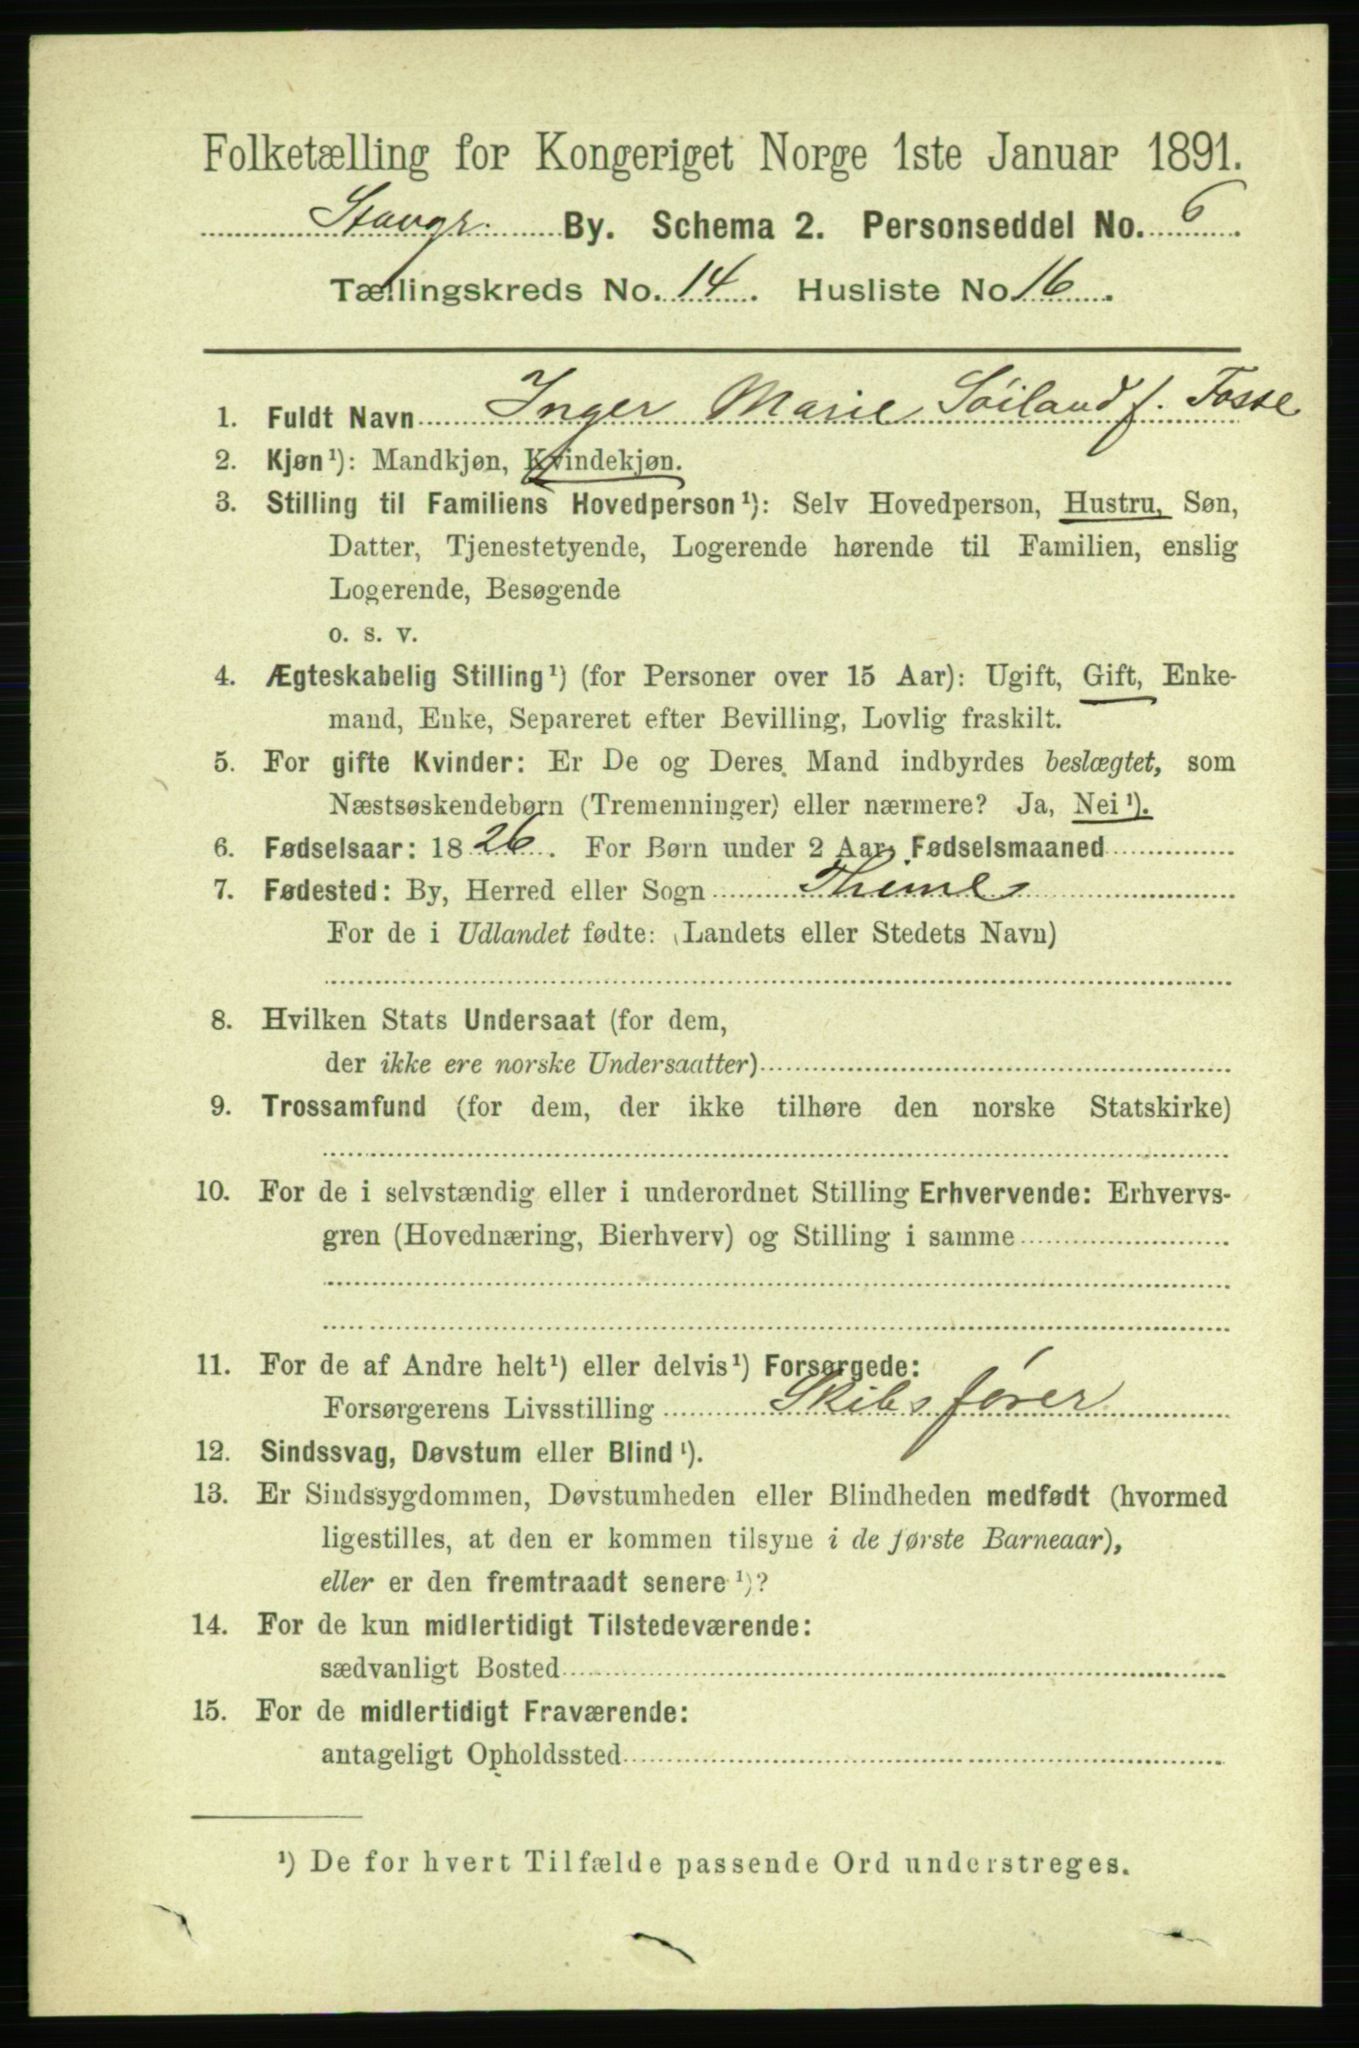 Folketælling for Kongeriget Norge 1ste Januar 1891.
Stavgr. By. Schema 2. Personseddel No. 6
Tællingskreds No. 14. Husliste No 16.
1. Fuldt Navn Inger Marie Söiland f. Fosse
2. Kjøn¹): Mandkjøn, Kvindekjøn.
3. Stilling til Familiens Hovedperson¹): Selv Hovedperson, Hustru, Søn,
Datter, Tjenestetyende, Logerende hørende til Familien, enslig
Logerende, Besøgende
o. s. v.
4. Ægteskabelig Stilling¹) (for Personer over 15 Aar): Ugift, Gift, Enke-
mand, Enke, Separeret efter Bevilling, Lovlig fraskilt.
5. For gifte Kvinder: Er De og Deres Mand indbyrdes beslægtet, som
Næstsøskendebørn (Tremenninger) eller nærmere? Ja, Nei¹).
6. Fødselsaar: 1826. For Børn under 2 Aar, Fødselsmaaned
7. Fødested: By, Herred eller Sogn Thime
For de i Udlandet fødte: (Landets eller Stedets Navn)
8. Hvilken Stats Undersaat (for dem,
der ikke ere norske Undersaatter)
9. Trossamfund (for dem, der ikke tilhøre den norske Statskirke)
10. For de i selvstændig eller i underordnet Stilling Erhvervende: Erhvervs-
gren (Hovednæring, Bierhverv) og Stilling i samme
11. For de af Andre helt¹) eller delvis¹) Forsørgede:
Forsørgerens Livsstilling Skibsfører
12. Sindssvag, Døvstum eller Blind¹).
13. Er Sindssygdommen, Døvstumheden eller Blindheden medfødt (hvormed
ligestilles, at den er kommen tilsyne i de første Barneaar),
eller er den fremtraadt senere¹)?
14. For de kun midlertidigt Tilstedeværende:
sædvanligt Bosted
15. For de midlertidigt Fraværende:
antageligt Opholdssted
¹) De for hvert Tilfælde passende Ord understreges.